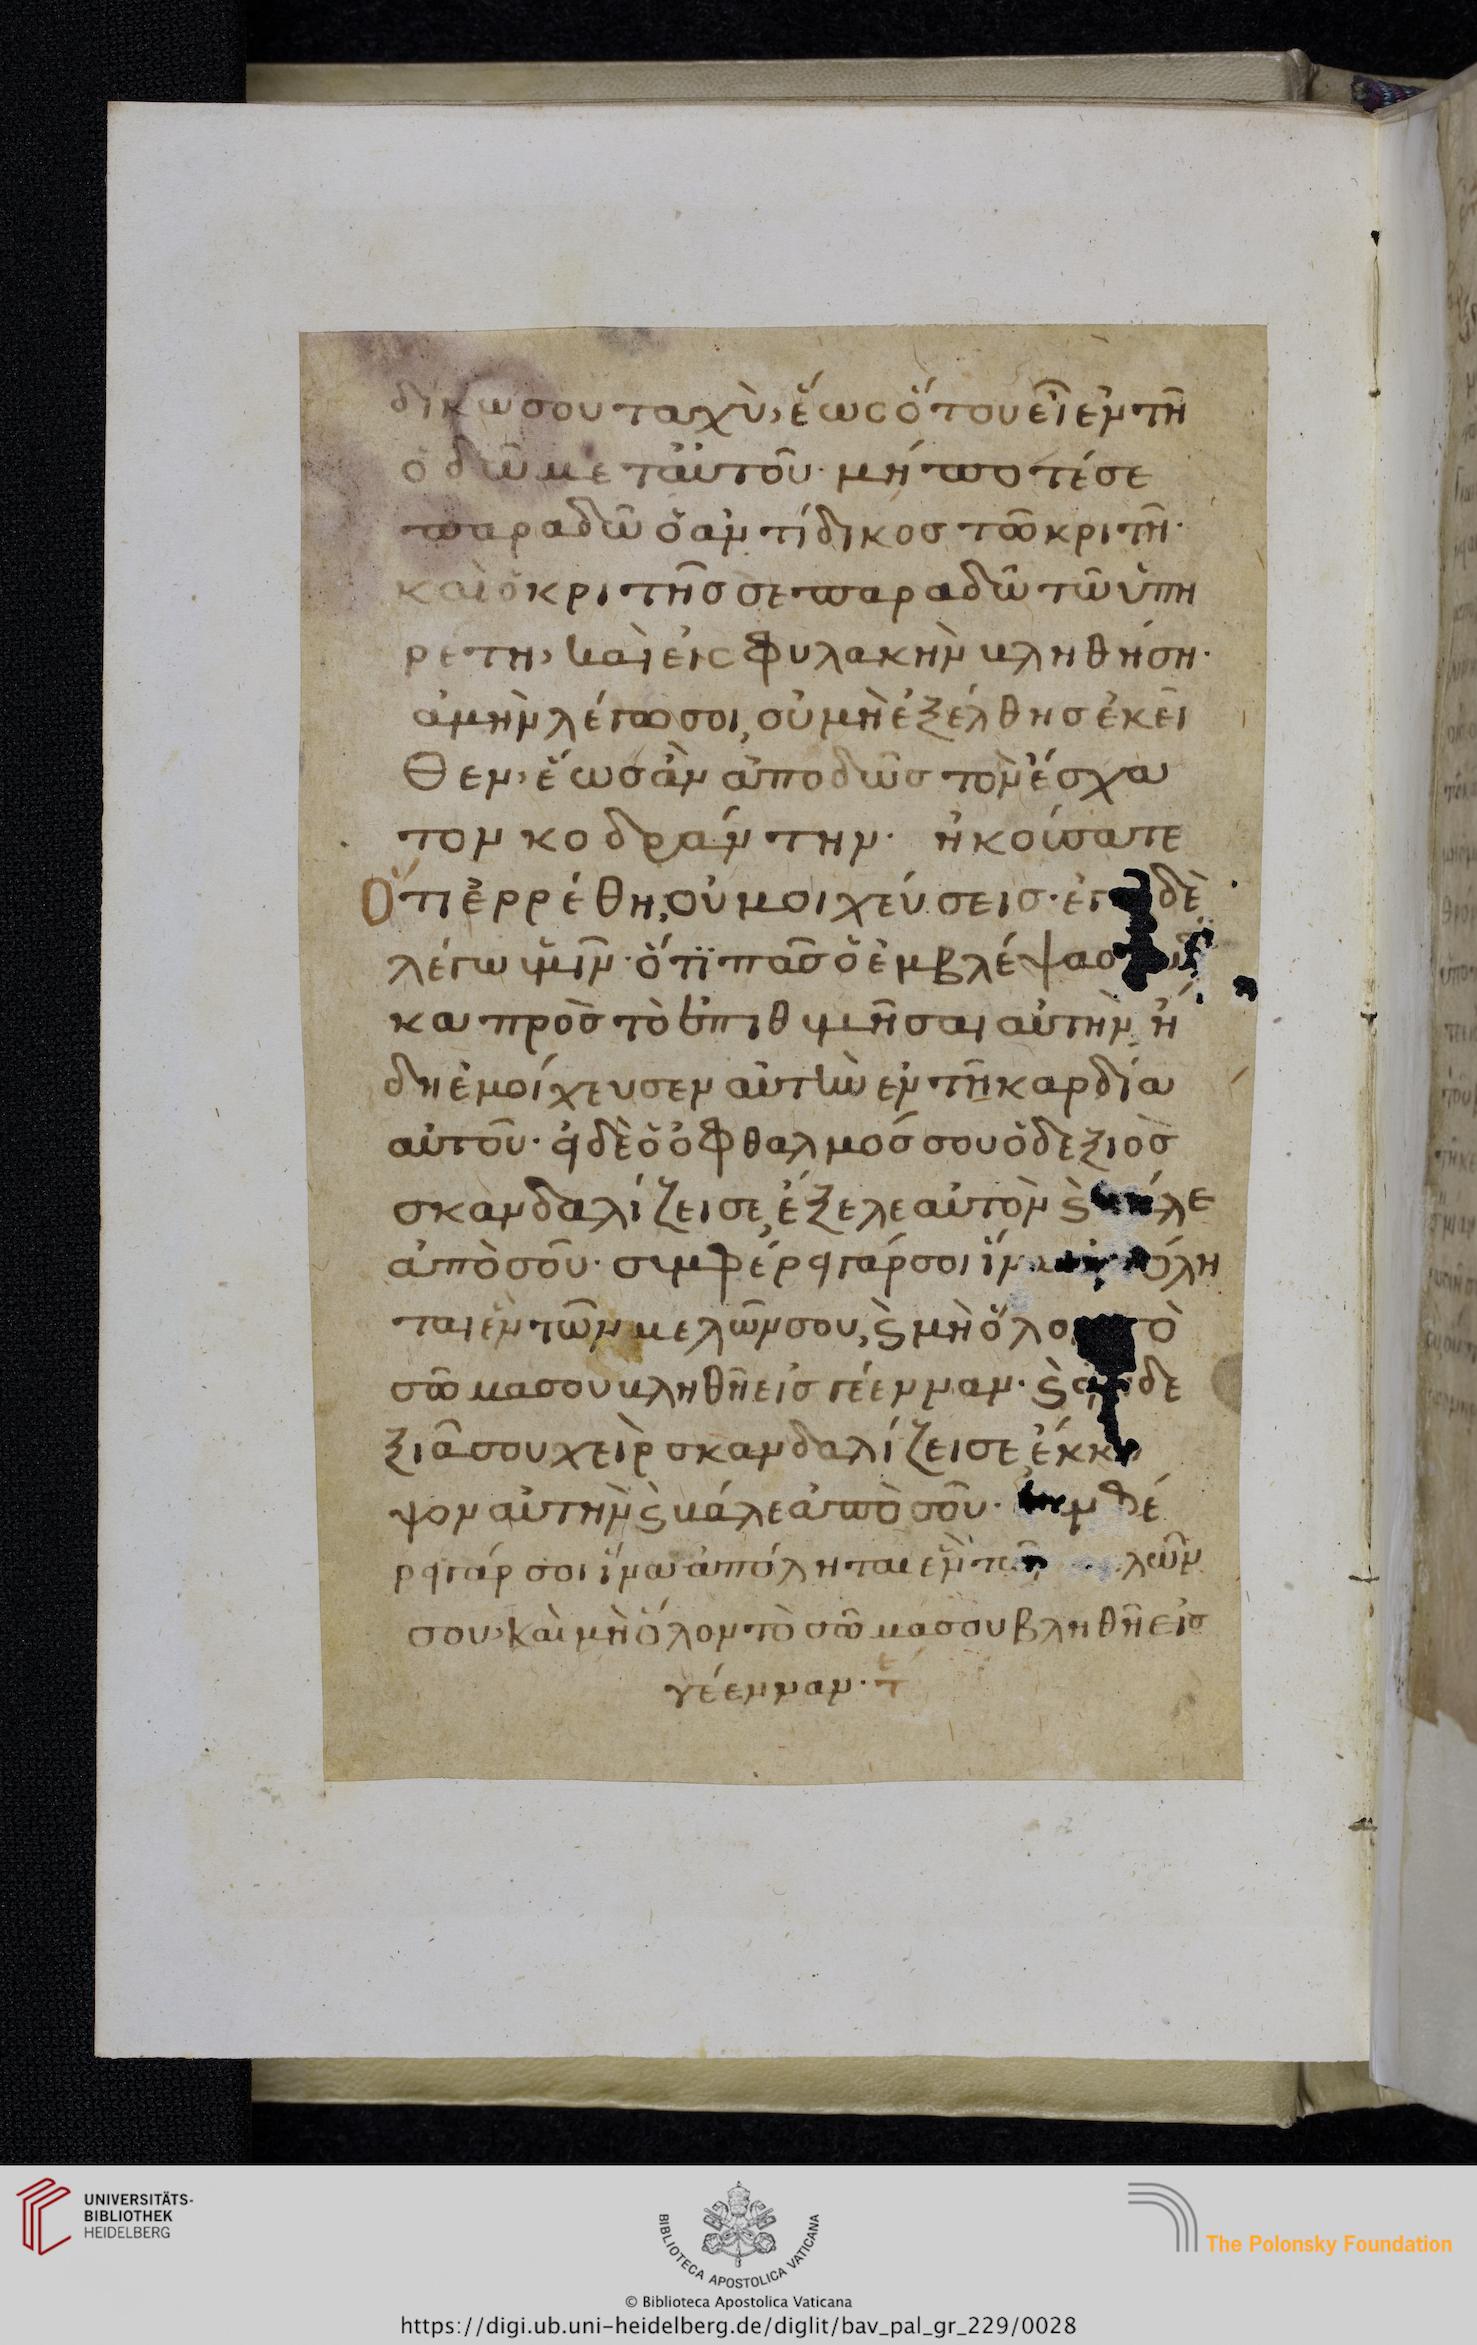 δίκω σου ταχὺ, ἕως ὅτου εἶ ἐν τῆ
ὁδῶ μετ αὐτοῦ· μήποτέ σε
παραδῶ ὁ ἀντίδικος τῶ κριτῆ·
καὶ ὁ κριτῆς σε παραδῶ τῶ ὑπη
ρετη, καὶ εἰς φυλακὴν βληθήση·
ἀμὴν λέγω σοι, οὐ μὴ ἐξέλθης ἐκεῖ
θεν, ἕως ἂν ἀποδῶς τὸν ἔσχα
τον κοδράντην· ἠκούσατε
Ὅτι ἐρρέθη, οὐ μοιχεύσεις· ἐγ δὲ
λέγω ὑμῖν· ὅτι πᾶς ὁ ἐμβλέψας
κα πρὸς τὸ ἐπιθυμῆσαι αὐτὴν, ἤ
δη ἐμοίχευσεν αὐτὴν ἐν τῆ καρδία
αὐτοῦ· εἰ δὲ ὁ ὀφθαλμός σου ὁ δεξιὸς
σκανδαλίζει σε, ἔξελε αὐτὸν ϗ λε
ἀπὸ σοῦ· συμφέρει γάρ σοι ἵνα όλη
ται ἓν τῶν μελῶν σου, ϗ μὴ ὅλο τὸ
σῶμα σου βληθῆ εἰς γέενναν· ϗ εἰ δε
ξιά σου χεὶρ σκανδαλίζει σε, ἔκκο
ψον αὐτὴν ϗ βάλε ἀπὸ σοῦ· μφέ
ρει γάρ σοι ἵνα ἀπόληται ἓν τῶν λῶν
σου, καὶ μὴ ὅλον τὸ σῶμα σου βληθῆ εἰς
γέενναν·
UNIVERSITÄTS-
BIBLIOTHEK
HEIDELBERG
BIBLIOTECA APOSTOLICA VATICANA
The Polonsky Foundation
© Biblioteca Apostolica Vaticana
https://digi.ub.uni-heidelberg.de/diglit/bav_pal_gr_229/0028